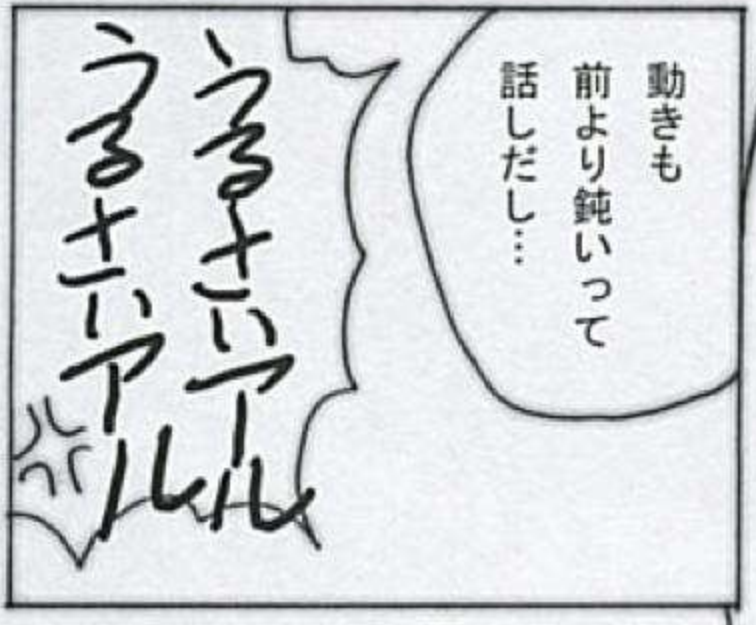 動きも
前より鈍いって
話しだし…
うるさいアル
うるさいアル